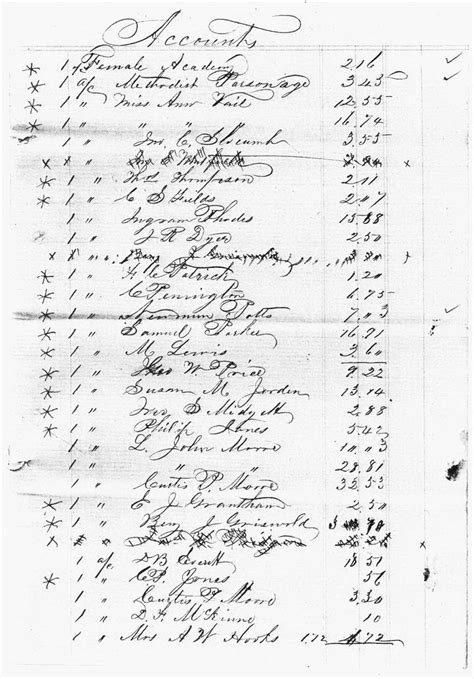 Accounts
* 1 a/c Female Academy 2.16 ✓
* 1 a/c Methodist Parsonage 3.45 ✓
* 1 " Miss Ann Vail 12.55
* 1 " 16.74
1 " Jno. C. Slocumb 3.55
* 1 " x
* 1 " Thompson 2.11
* 1 " C S Fields 2.07
1 " Ingram Rhodes 15.88
1 " J R Dyer 2.50
x x " x
* 1 " Patrick 1.20
1 " C Pennington 6.75
* 1 " Potts 7.03 ✓
* 1 " Samuel Parker 16.71
1 " M Lewis 3.60
* 1 " W Price 9.22
* 1 " Susan M Jorden 13.14
* 1 " Jno S Midyett 2.88
* 1 " Philip Jones 5.42
1 " L. John Moore 10.03
1 " " " 28.81
1 " Curtis P. Moore 32.53
* 1 " E J Grantham 2.50
* 1 " Benj J Griswold 70
x 1 "
1 a/c D B Everett 18 51
* 1 " Jones 56
1 " Curtis P Moore 3.30
1 " McKinne 10
1 " Mrs A W Hooks 1.72 72